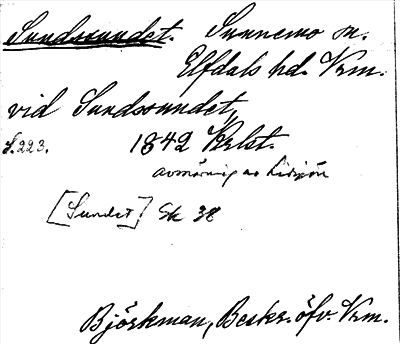 Sundssundet. Sunnemo sn.
Elfdals hd. Vrm.
vid Sundssundet,
s. 223. 1842 Krlst.
avmätning av Lidsjön
[Sundet] Ek 38
Björkman, Beskr. öfv. Vrm.